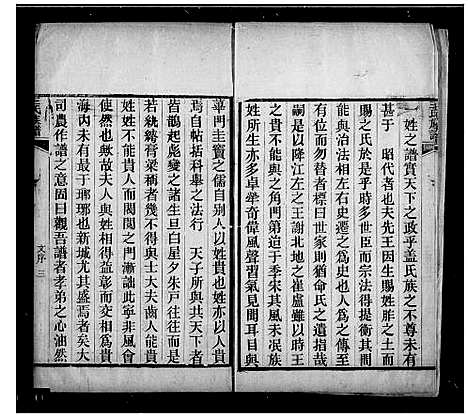 王氏族譜
姓之譜貴天下之政乎蓋氏族之不尊未有
甚于　昭代者也夫先王因生賜姓胙土而
賜之氏於是乎時多世臣而宗法得提衡其間
能與治法相左右史遷之為史也人為之傳至
有位而勿替者標曰世家則猶命氏之遺指哉
以故降江左之王謝北地之崔盧雖以時王
之尊不得與其閥閱角第季宋其風未泯故
姓所生亦多卓犖奇偉風聲習氣見聞耳目與
蓽門圭竇之儒自别人以姓貴也姓亦以人貴
焉自帖括科舉之法行　天子所與共天下者
皆鵲起彪變之諸生旦白屋夕朱戸往往而有
若紈綺膏梁稱者幾不得與士大夫齒人能貴
姓姓不能貴人而閥閱之門漸詘此寧非風會
使然也歟故夫人與姓相得益彰而交相貴
海內未有最于瑯琊也新城尤其盛焉者矣大
司農作譜之意固曰觀吾譜者孝弟之心油然
文序　三